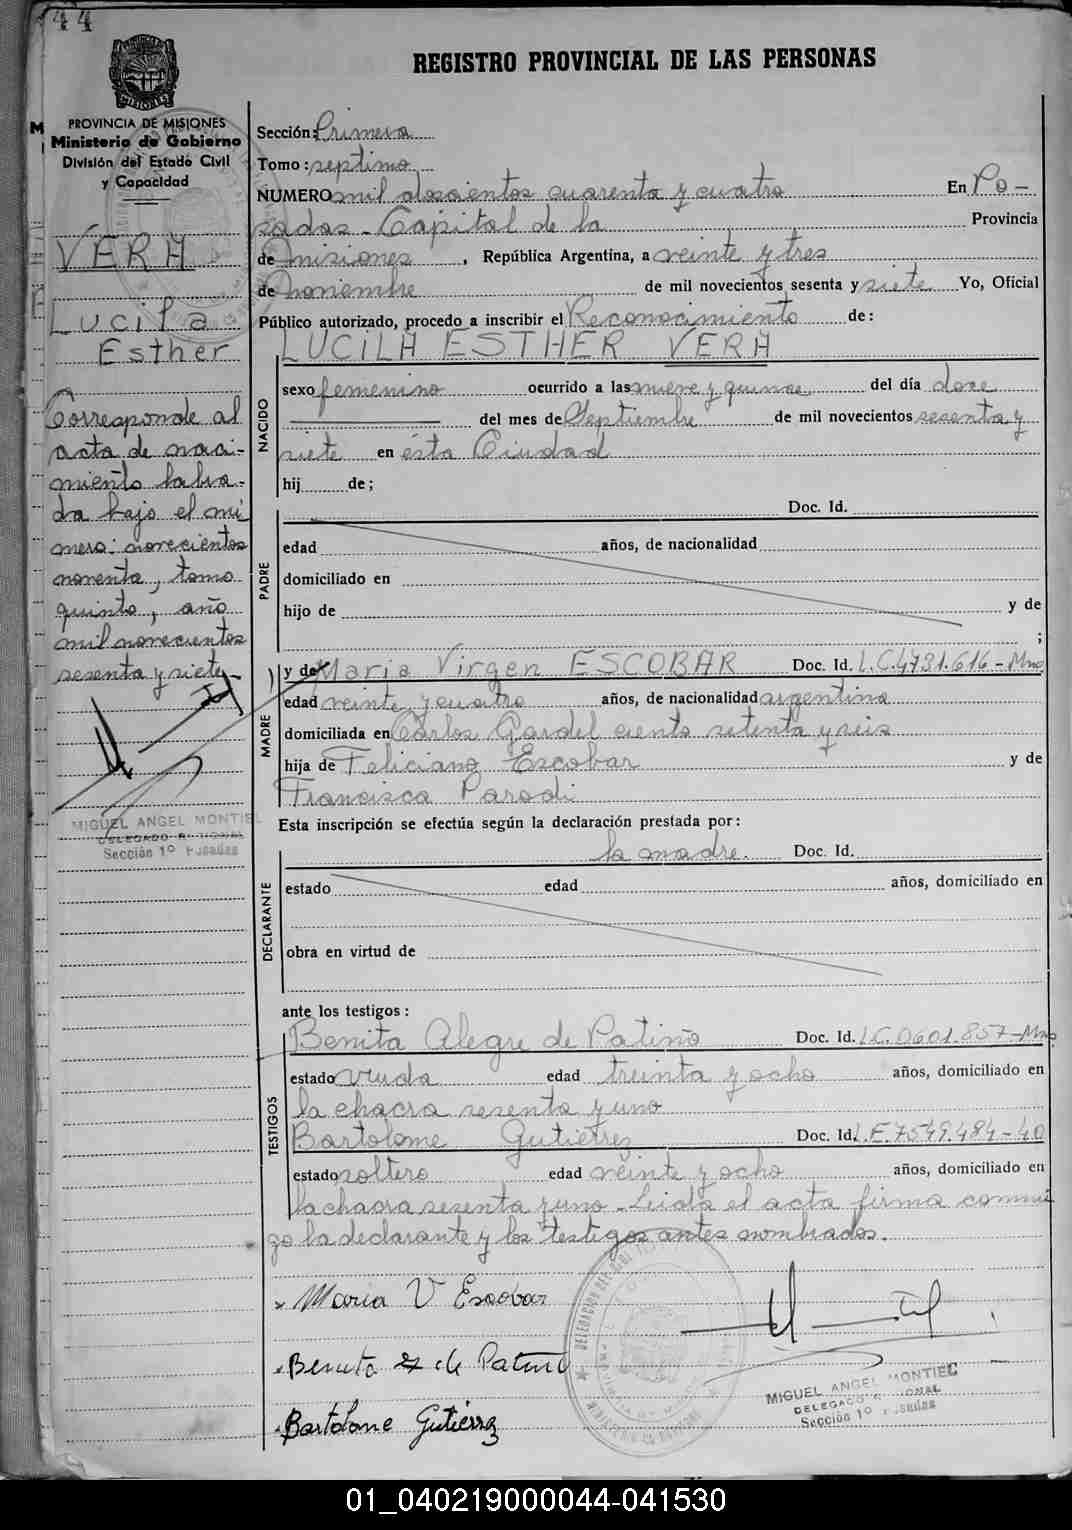 44
REGISTRO PROVINCIAL DE LAS PERSONAS
PROVINCIA DE MISIONES
Ministerio de Gobierno
División del Estado Civil
y Capacidad
VERA
Lucila
Esther
Corresponde al
acta de naci-
miento labra-
da bajo el nú
mero: novecientos
noventa, tomo
quinto, año
mil novecientos
sesenta y siete
MIGUEL ANGEL MONTIEL
DELEGADO
Sección 1º Posadas
Sección: Primera
Tomo: septimo
NUMERO mil doscientos cuarenta y cuatro En Po-
sadas - Capital de la Provincia
de Misiones, República Argentina, a veinte y tres
de noviembre de mil novecientos sesenta y siete Yo, Oficial
Público autorizado, procedo a inscribir el Reconocimiento de:
LUCILA ESTHER VERA
NACIDO
sexo femenino ocurrido a las nueve y quince del día doce
del mes de Septiembre de mil novecientos sesenta y
siete en ésta Ciudad
hij de;
PADRE
Doc. Id.
edad años, de nacionalidad
domiciliado en
hijo de y de
;
MADRE
y de Maria Virgen ESCOBAR Doc. Id. L.C.4731.616-Mnes
edad veinte y cuatro años, de nacionalidad argentina
domiciliada en Carlos Gardel ciento setenta y seis
hija de Feliciano Escobar y de
Francisca Parodi
Esta inscripción se efectúa según la declaración prestada por:
DECLARANTE
la madre. Doc. Id.
estado edad años, domiciliado en
obra en virtud de
ante los testigos:
TESTIGOS
Benita Alegre de Patiño Doc. Id. L.C.0601.857-Mnes
estado viuda edad treinta y ocho años, domiciliado en
la chacra sesenta y uno
Bartolome Gutierrez Doc. Id. L.E.7549.484-40
estado soltero edad veinte y ocho años, domiciliado en
la chacra sesenta y uno - Leida el acta firma conmi
go la declarante y los testigos antes nombrados.
Maria V Escobar
Benita de Patiño
Bartolome Gutierrez
MIGUEL ANGEL MONTIEL
DELEGADO
Sección 1º Posadas
01_040219000044-041530